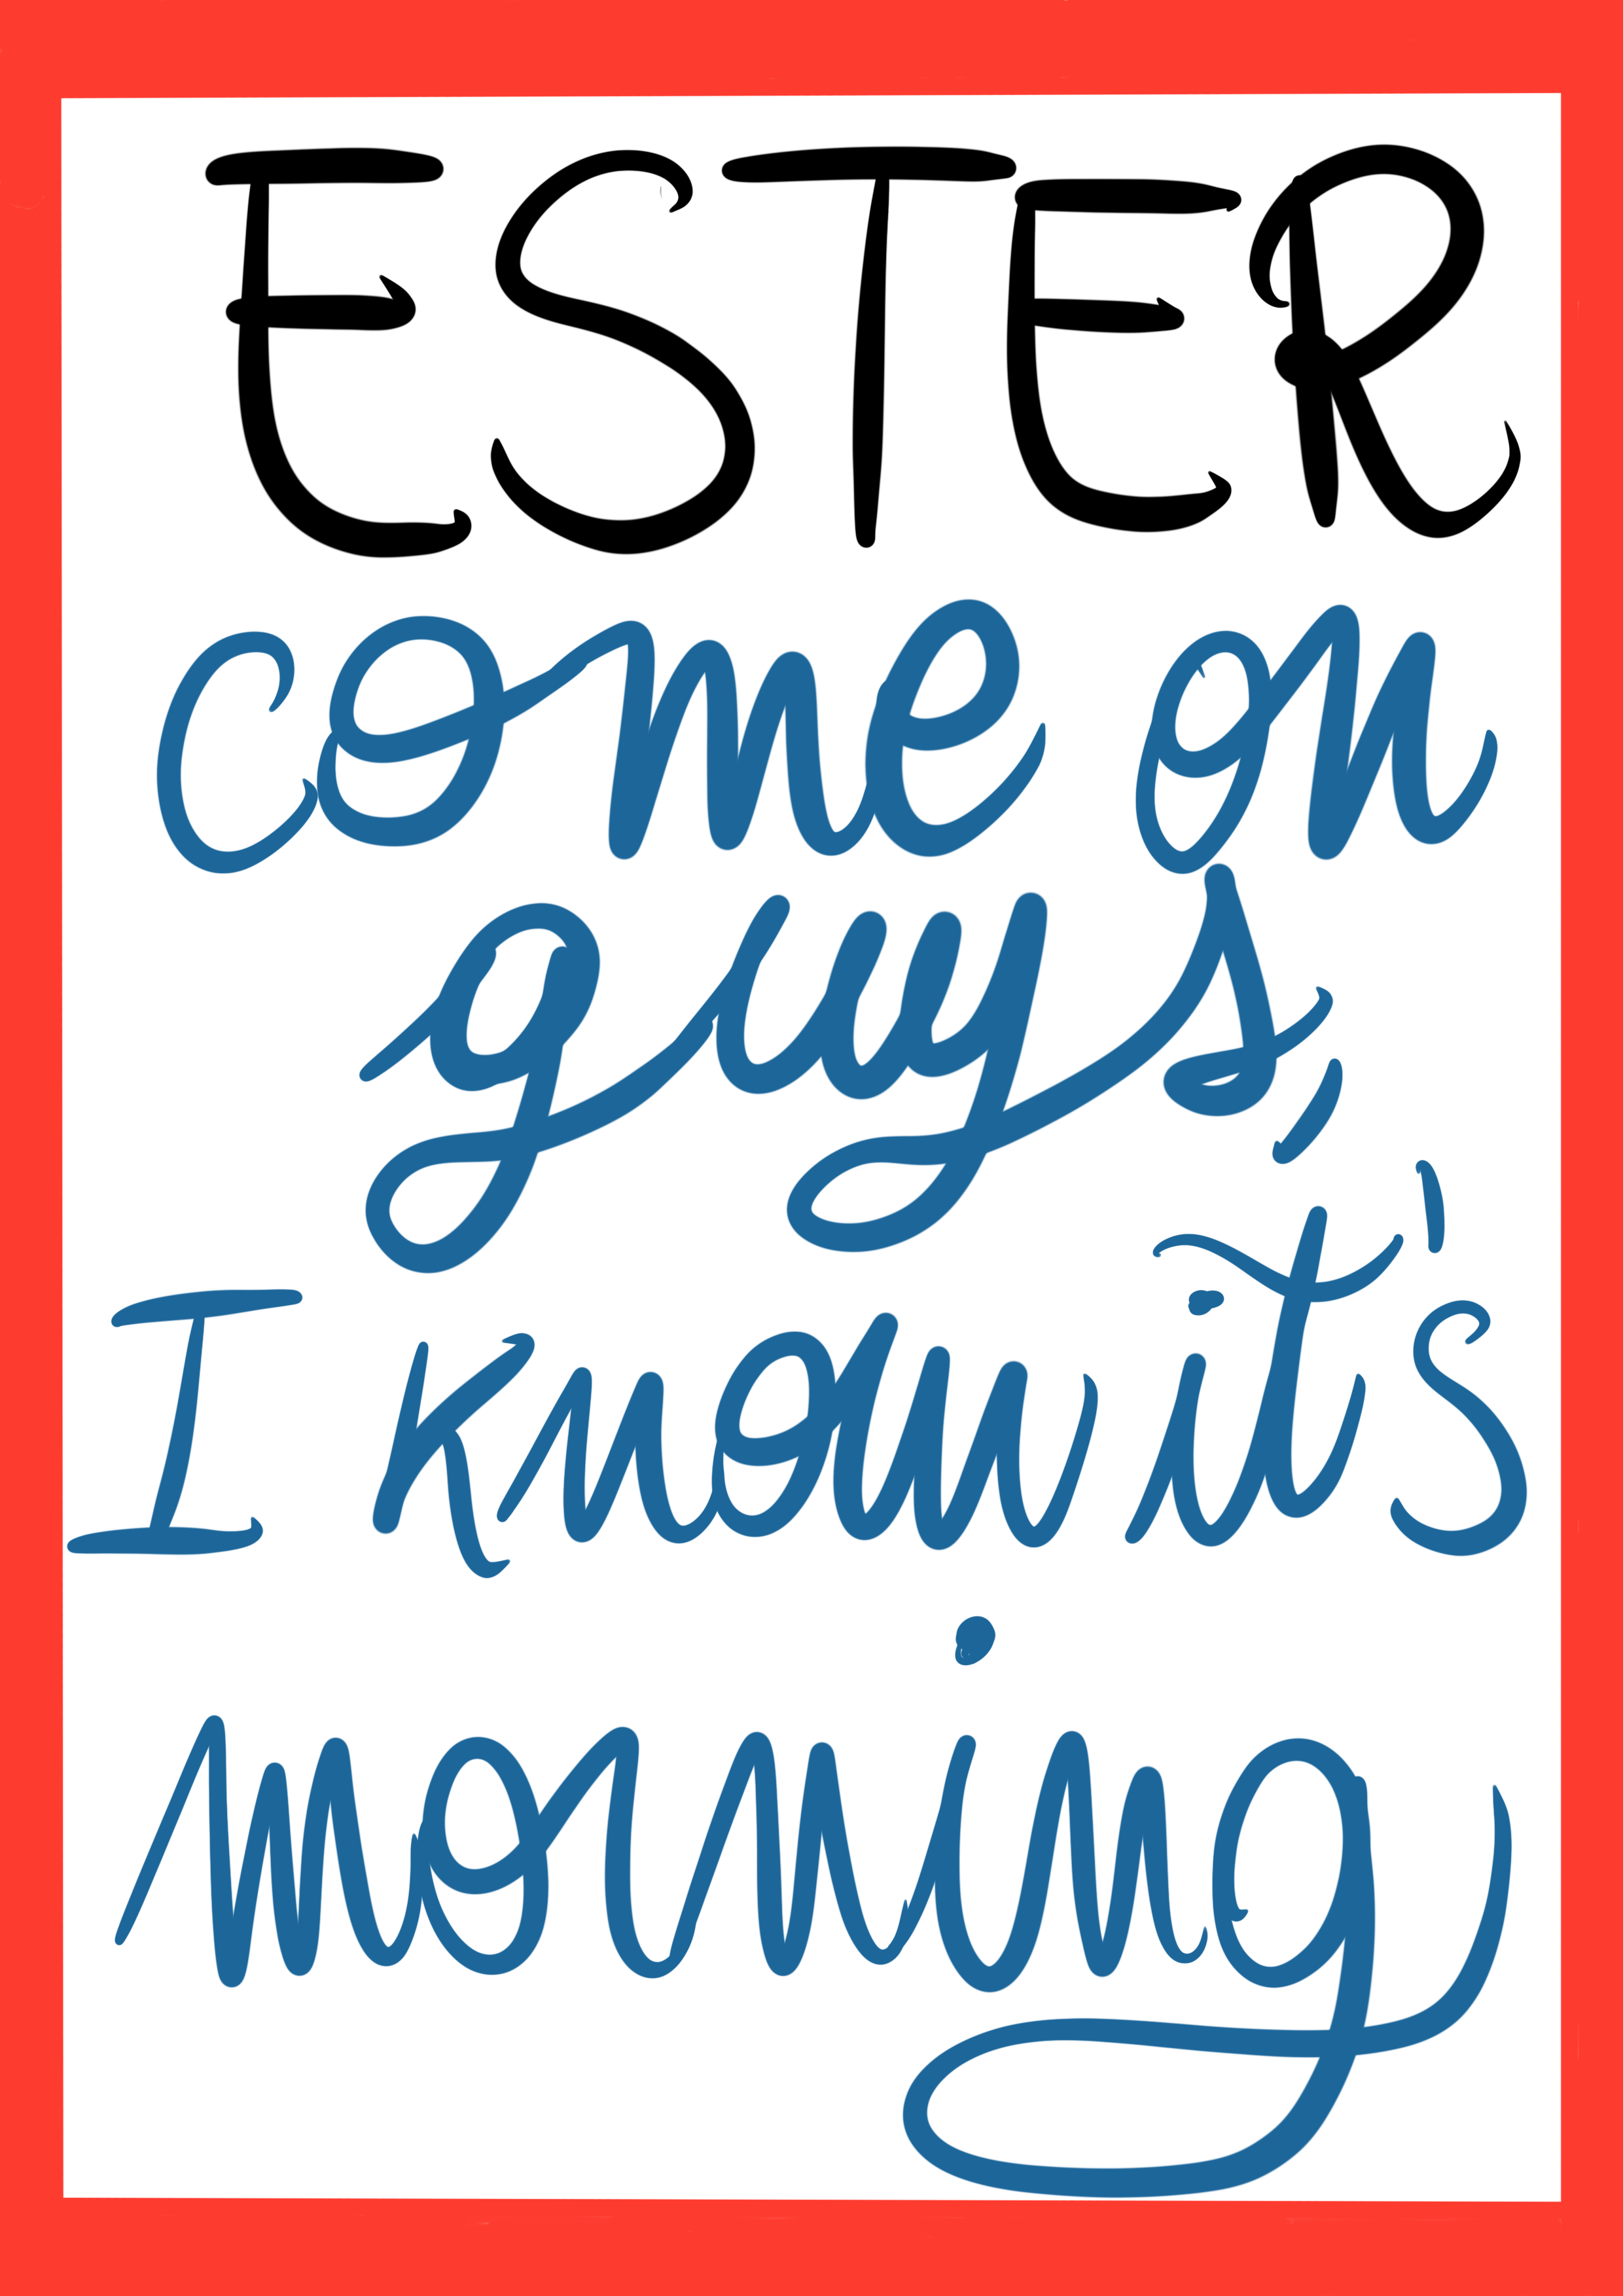 ESTER
come on
guys,
I know it's
morning